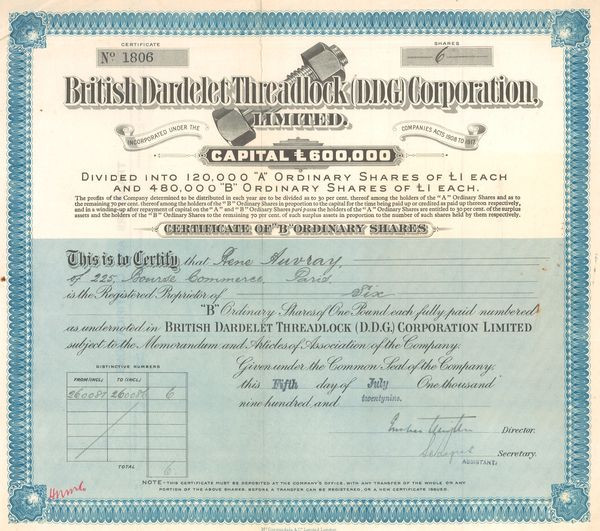 CERTIFICATE
No 1806
SHARES
6
British Dardelet Threadlock (D.D.G) Corporation,
LIMITED.
INCORPORATED UNDER THE
COMPANIES ACTS 1908 TO 1917.
CAPITAL £600,000
DIVIDED INTO 120,000 "A" ORDINARY SHARES OF £1 EACH
AND 480,000 "B" ORDINARY SHARES OF £1 EACH.
The profits of the Company determined to be distributed in each year are to be divided as to 30 per cent. thereof among the holders of the "A" Ordinary Shares and as to
the remaining 70 per cent. thereof among the holders of the "B" Ordinary Shares in proportion to the capital for the time being paid up or credited as paid up thereon respectively,
and in a winding-up after repayment of capital on the "A" and "B" Ordinary Shares pari passu the holders of the "A" Ordinary Shares are entitled to 30 per cent. of the surplus
assets and the holders of the "B" Ordinary Shares to the remaining 70 per cent. of such surplus assets in proportion to the number of such shares held by them respectively.
CERTIFICATE OF "B" ORDINARY SHARES
This is to Certify that Rene Auvray,
of 225, Bourse Commerce, Paris
is the Registered Proprietor of Six
"B" Ordinary Shares of One Pound each fully paid numbered
as undernoted in BRITISH DARDELET THREADLOCK (D.D.G.) CORPORATION LIMITED
subject to the Memorandum and Articles of Association of the Company.
Given under the Common Seal of the Company,
this Fifth day of July One thousand
nine hundred and twentynine.
DISTINCTIVE NUMBERS
FROM (INCL) TO (INCL)
260081 260086 6
TOTAL 6
Director.
Secretary.
ASSISTANT.
NOTE-THIS CERTIFICATE MUST BE DEPOSITED AT THE COMPANY'S OFFICE, WITH ANY TRANSFER OF THE WHOLE OR ANY
PORTION OF THE ABOVE SHARES, BEFORE A TRANSFER CAN BE REGISTERED, OR A NEW CERTIFICATE ISSUED.